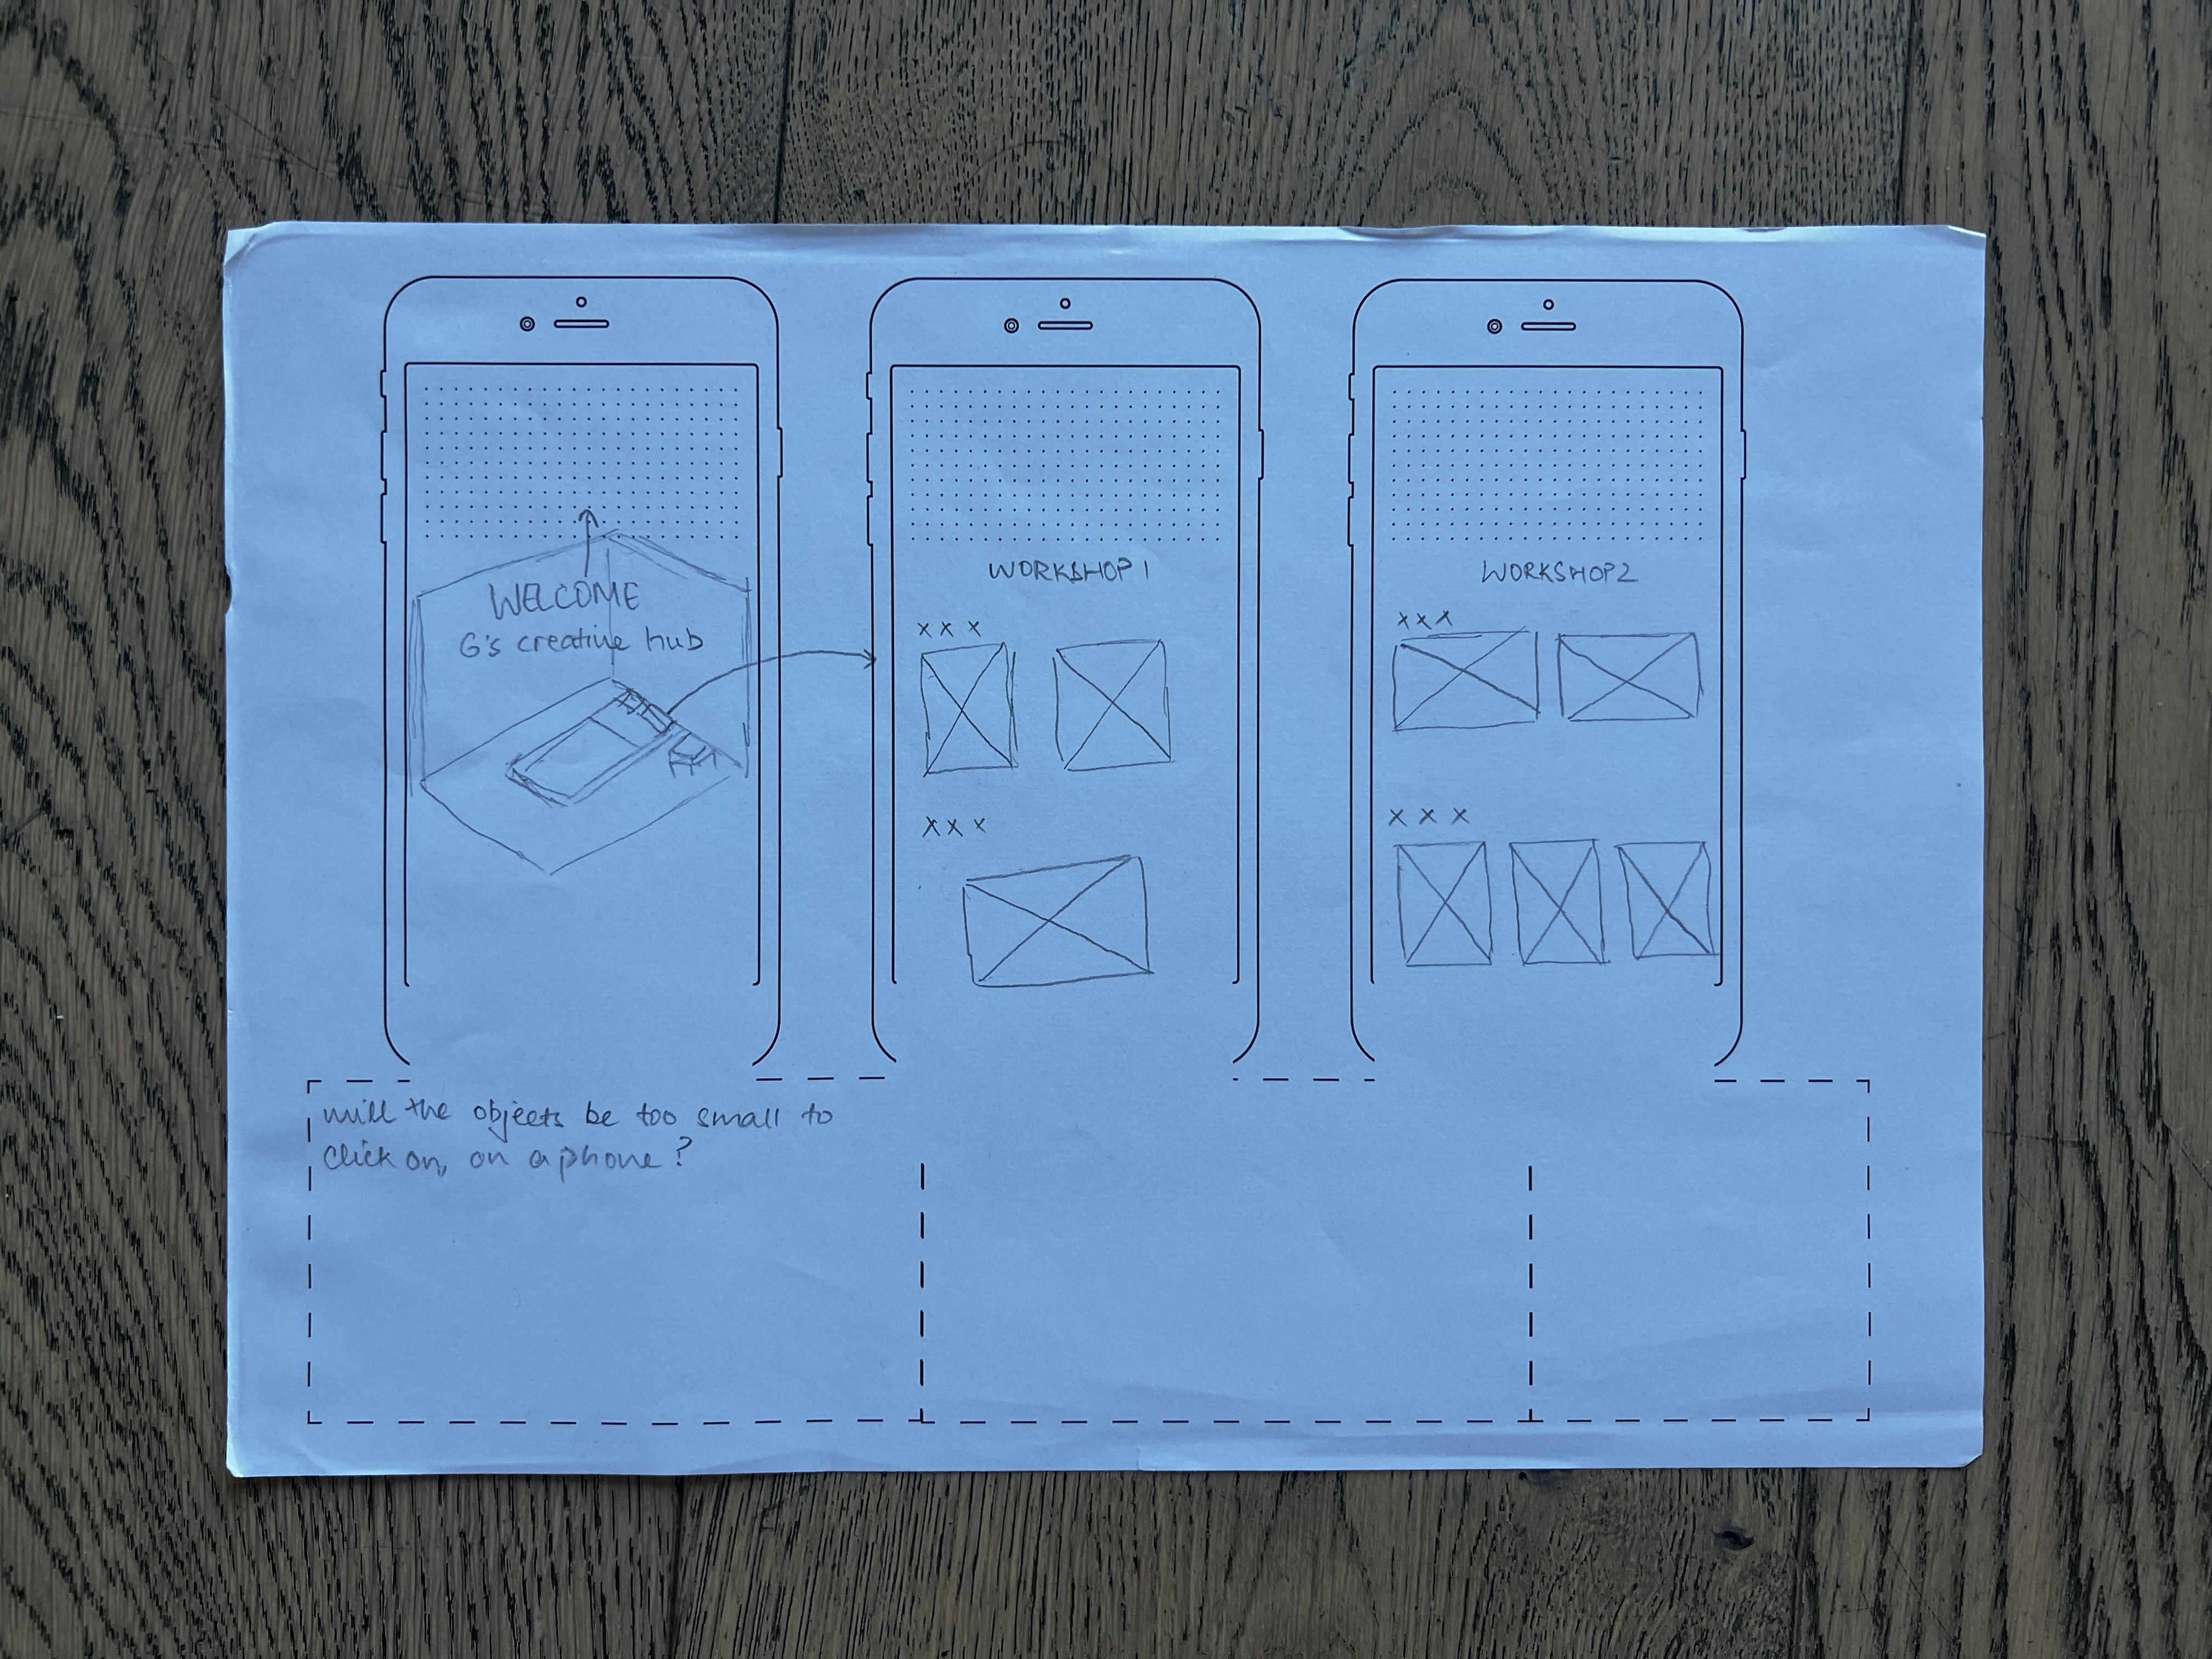 WELCOME
G's creative hub
WORKSHOP 1
x x x
x x x
WORKSHOP 2
x x x
x x x
will the objects be too small to
click on, on a phone?